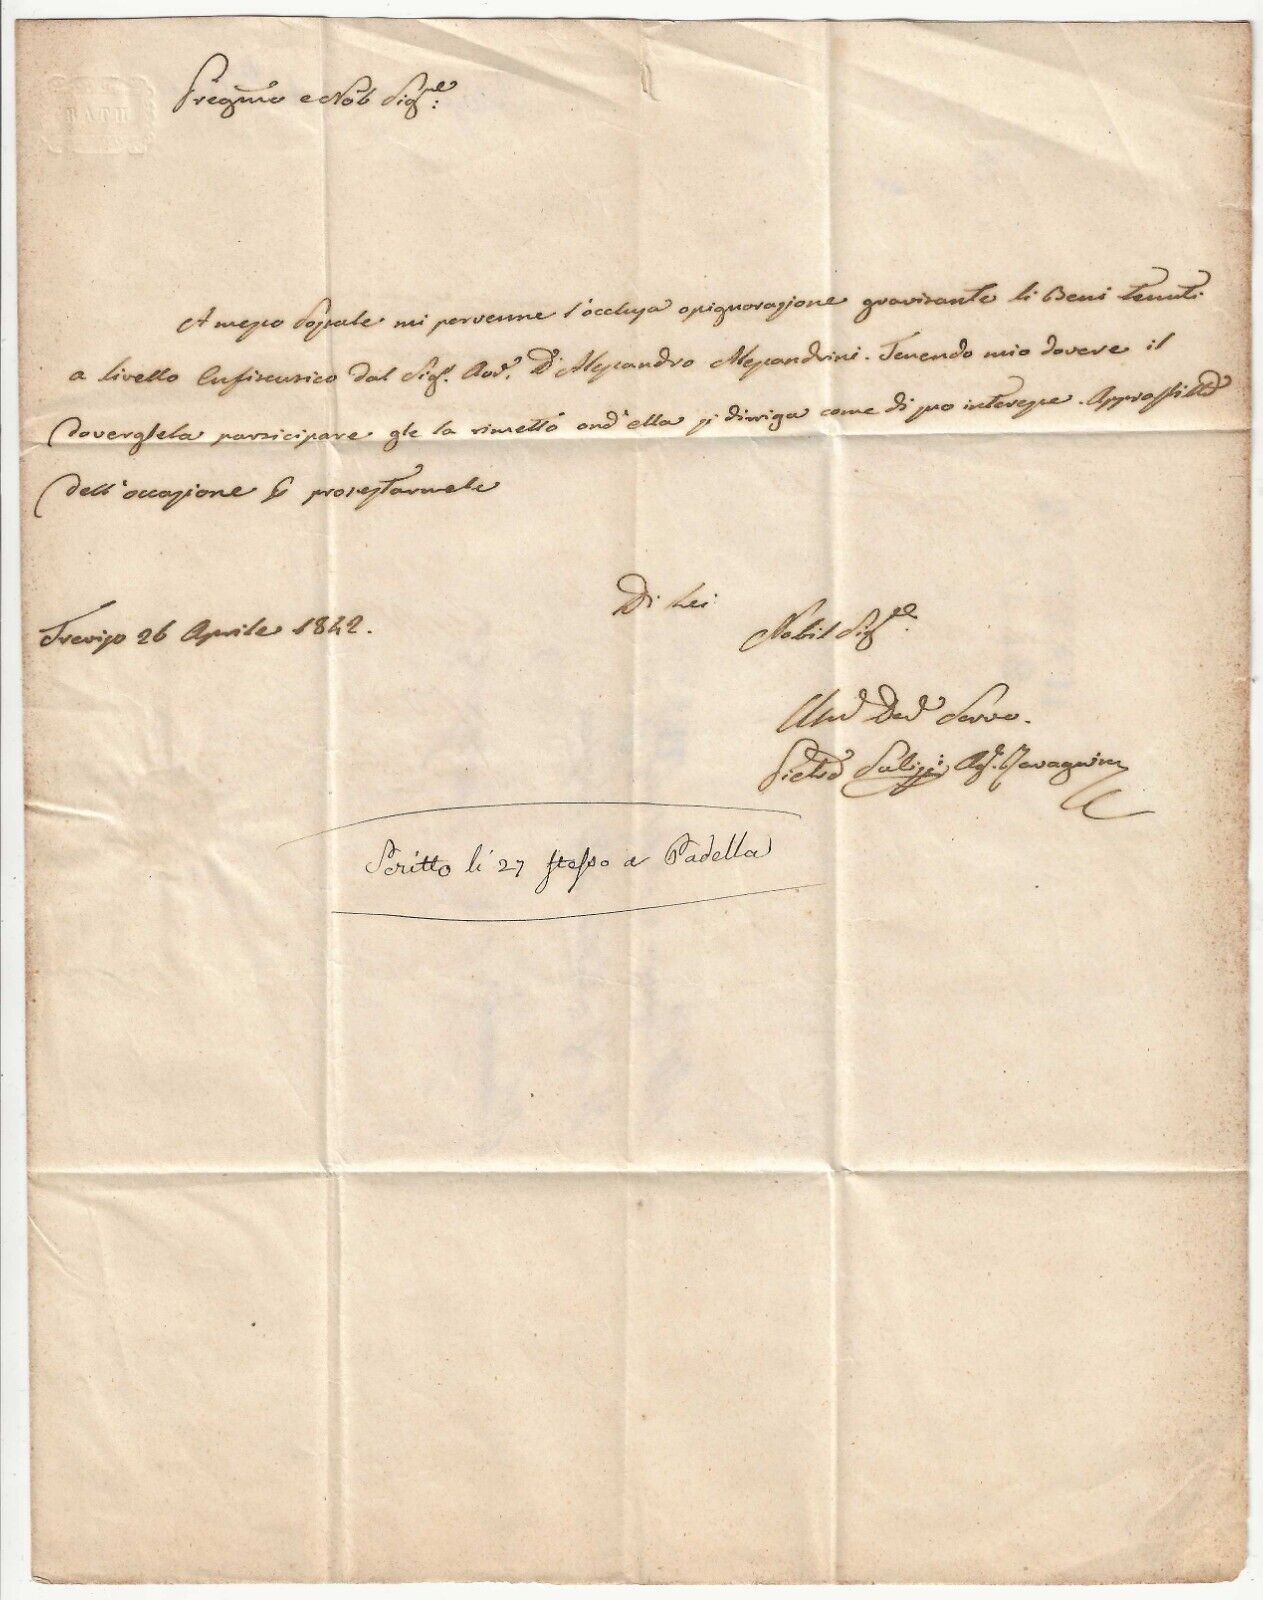 Pregmo e Nob Sigre:
A mezzo Postale mi pervenne l'acclusa opignorazione gravitante li Beni tenuti
a livello Enfiteutico dal Sigr. Avv. Dr Alessandro Alessandrini. Tenendo mio dovere il
dovergliela partecipare gle la rimetto ond'ella si diriga come di suo interesse. Approfitto
dell'occasione per protestarmele
Di Lei
Treviso 26 Aprile 1842.
Nobil Sigre:
Umo Devo Servo.
Pietro Agte.
Scritto li 27 stesso a Padella